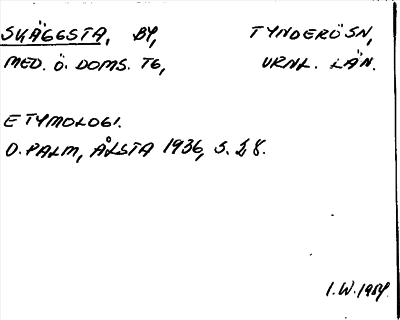 SKÄGGSTA, BY, TYNDERÖ SN,
MED. Ö. DOMS. TG, VRNL. LÄN.
ETYMOLOGI.
D. PALM, ÅLSTA 1936, S. 28.
I.W. 1984.